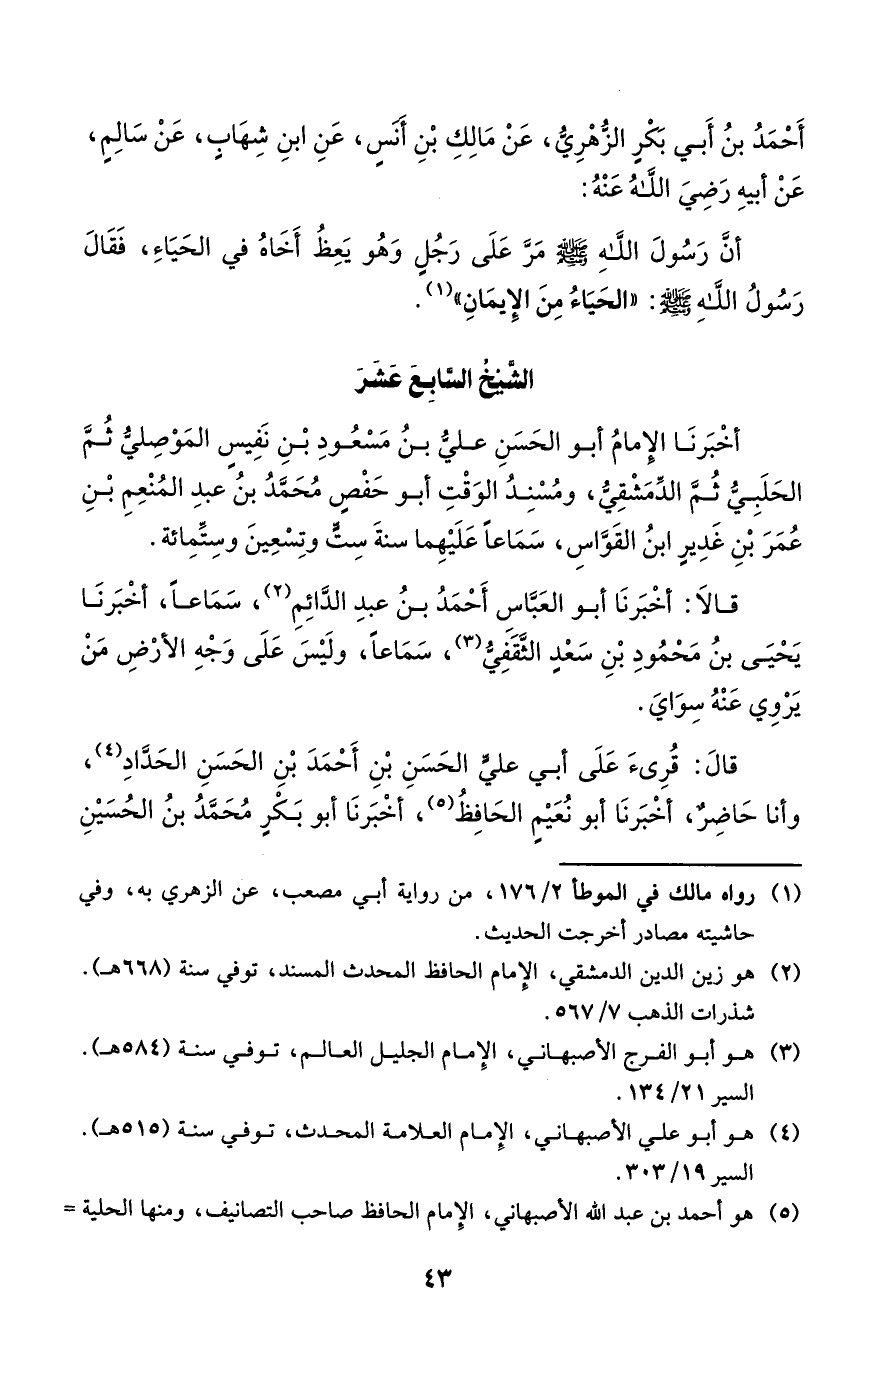 أَحْمَدُ بنُ أَبـي بَكْرٍ الزُّهْرِيُّ، عَنْ مَالِكِ بْنِ أَنَسٍ، عَنِ ابنِ شِهَابٍ، عَنْ سَالِمٍ،
عَنْ أبيهِ رَضِيَ اللَّـهُ عَنْهُ:
أنَّ رَسُولَ اللَّـهِ ﷺ مَرَّ عَلَى رَجُلٍ وَهُو يَعِظُ أَخَاهُ في الحَيَاءِ، فَقَالَ
رَسُولُ اللَّـهِ ﷺ: «الحَيَاءُ مِنَ الإِيمَانِ»(١).
الشَّيْخُ السَّابِعَ عَشَرَ
أخْبَرَنَـا الإِمامُ أبـو الحَسَنِ عـليُّ بـنُ مَسْعُـودِ بْـنِ نَفِيسٍ المَوْصِليُّ ثُـمَّ
الحَلَبِـيُّ ثُـمَّ الدِّمَشْقِيُّ، ومُسْنِـدُ الوَقْتِ أبـو حَفْصٍ مُحَمَّدُ بنُ عبدِ المُنْعِمِ بْـنِ
عُمَرَ بْنِ غَدِيرٍ ابنُ القَوَّاسِ، سَمَاعاً عَلَيْهِما سنةَ سِتٍّ وتِسْعِينَ وسِتِّمائة.
قـالَا: أخْبَرنَا أبـو العَبَّاسِ أَحْمَدُ بـنُ عبدِ الدَّائِمِ(٢)، سَمَاعـاً، أخْبَرنَـا
يَحْيَـى بنُ مَحْمُودِ بْنِ سَعْدٍ الثَّقَفِيُّ(٣)، سَمَاعاً، ولَيْسَ عَلَى وَجْهِ الأرْضِ مَنْ
يَرْوِي عَنْهُ سِوَايَ.
قالَ: قُرِىءَ عَلَى أبـي عليٍّ الحَسَنِ بْنِ أَحْمَدَ بْنِ الحَسَنِ الحَدَّادِ(٤)،
وأنا حَاضِرٌ، أخْبَرنَا أبو نُعَيْمٍ الحَافِظُ(٥)، أخْبَرنَا أبو بَـكْرٍ مُحَمَّدُ بنُ الحُسَيْنِ
(١) رواه مالك في الموطأ ٢/ ١٧٦، من رواية أبـي مصعب، عن الزهري به، وفي
حاشيته مصادر أخرجت الحديث.
(٢) هو زين الدين الدمشقي، الإِمام الحافظ المحدث المسند، توفي سنة (٦٦٨هـ).
شذرات الذهب ٧/ ٥٦٧.
(٣) هـو أبـو الفـرج الأصبهـانـي، الإِمـام الجليـل العـالـم، تـوفـي سنـة (٥٨٤هـ).
السير ٢١/ ١٣٤.
(٤) هـو أبـو علـي الأصبهـانـي، الإِمـام العـلامـة المحـدث، تـوفـي سنـة (٥١٥هـ).
السير ١٩/ ٣٠٣.
(٥) هو أحمد بن عبد الله الأصبهاني، الإِمام الحافظ صاحب التصانيف، ومنها الحلية =
٤٣